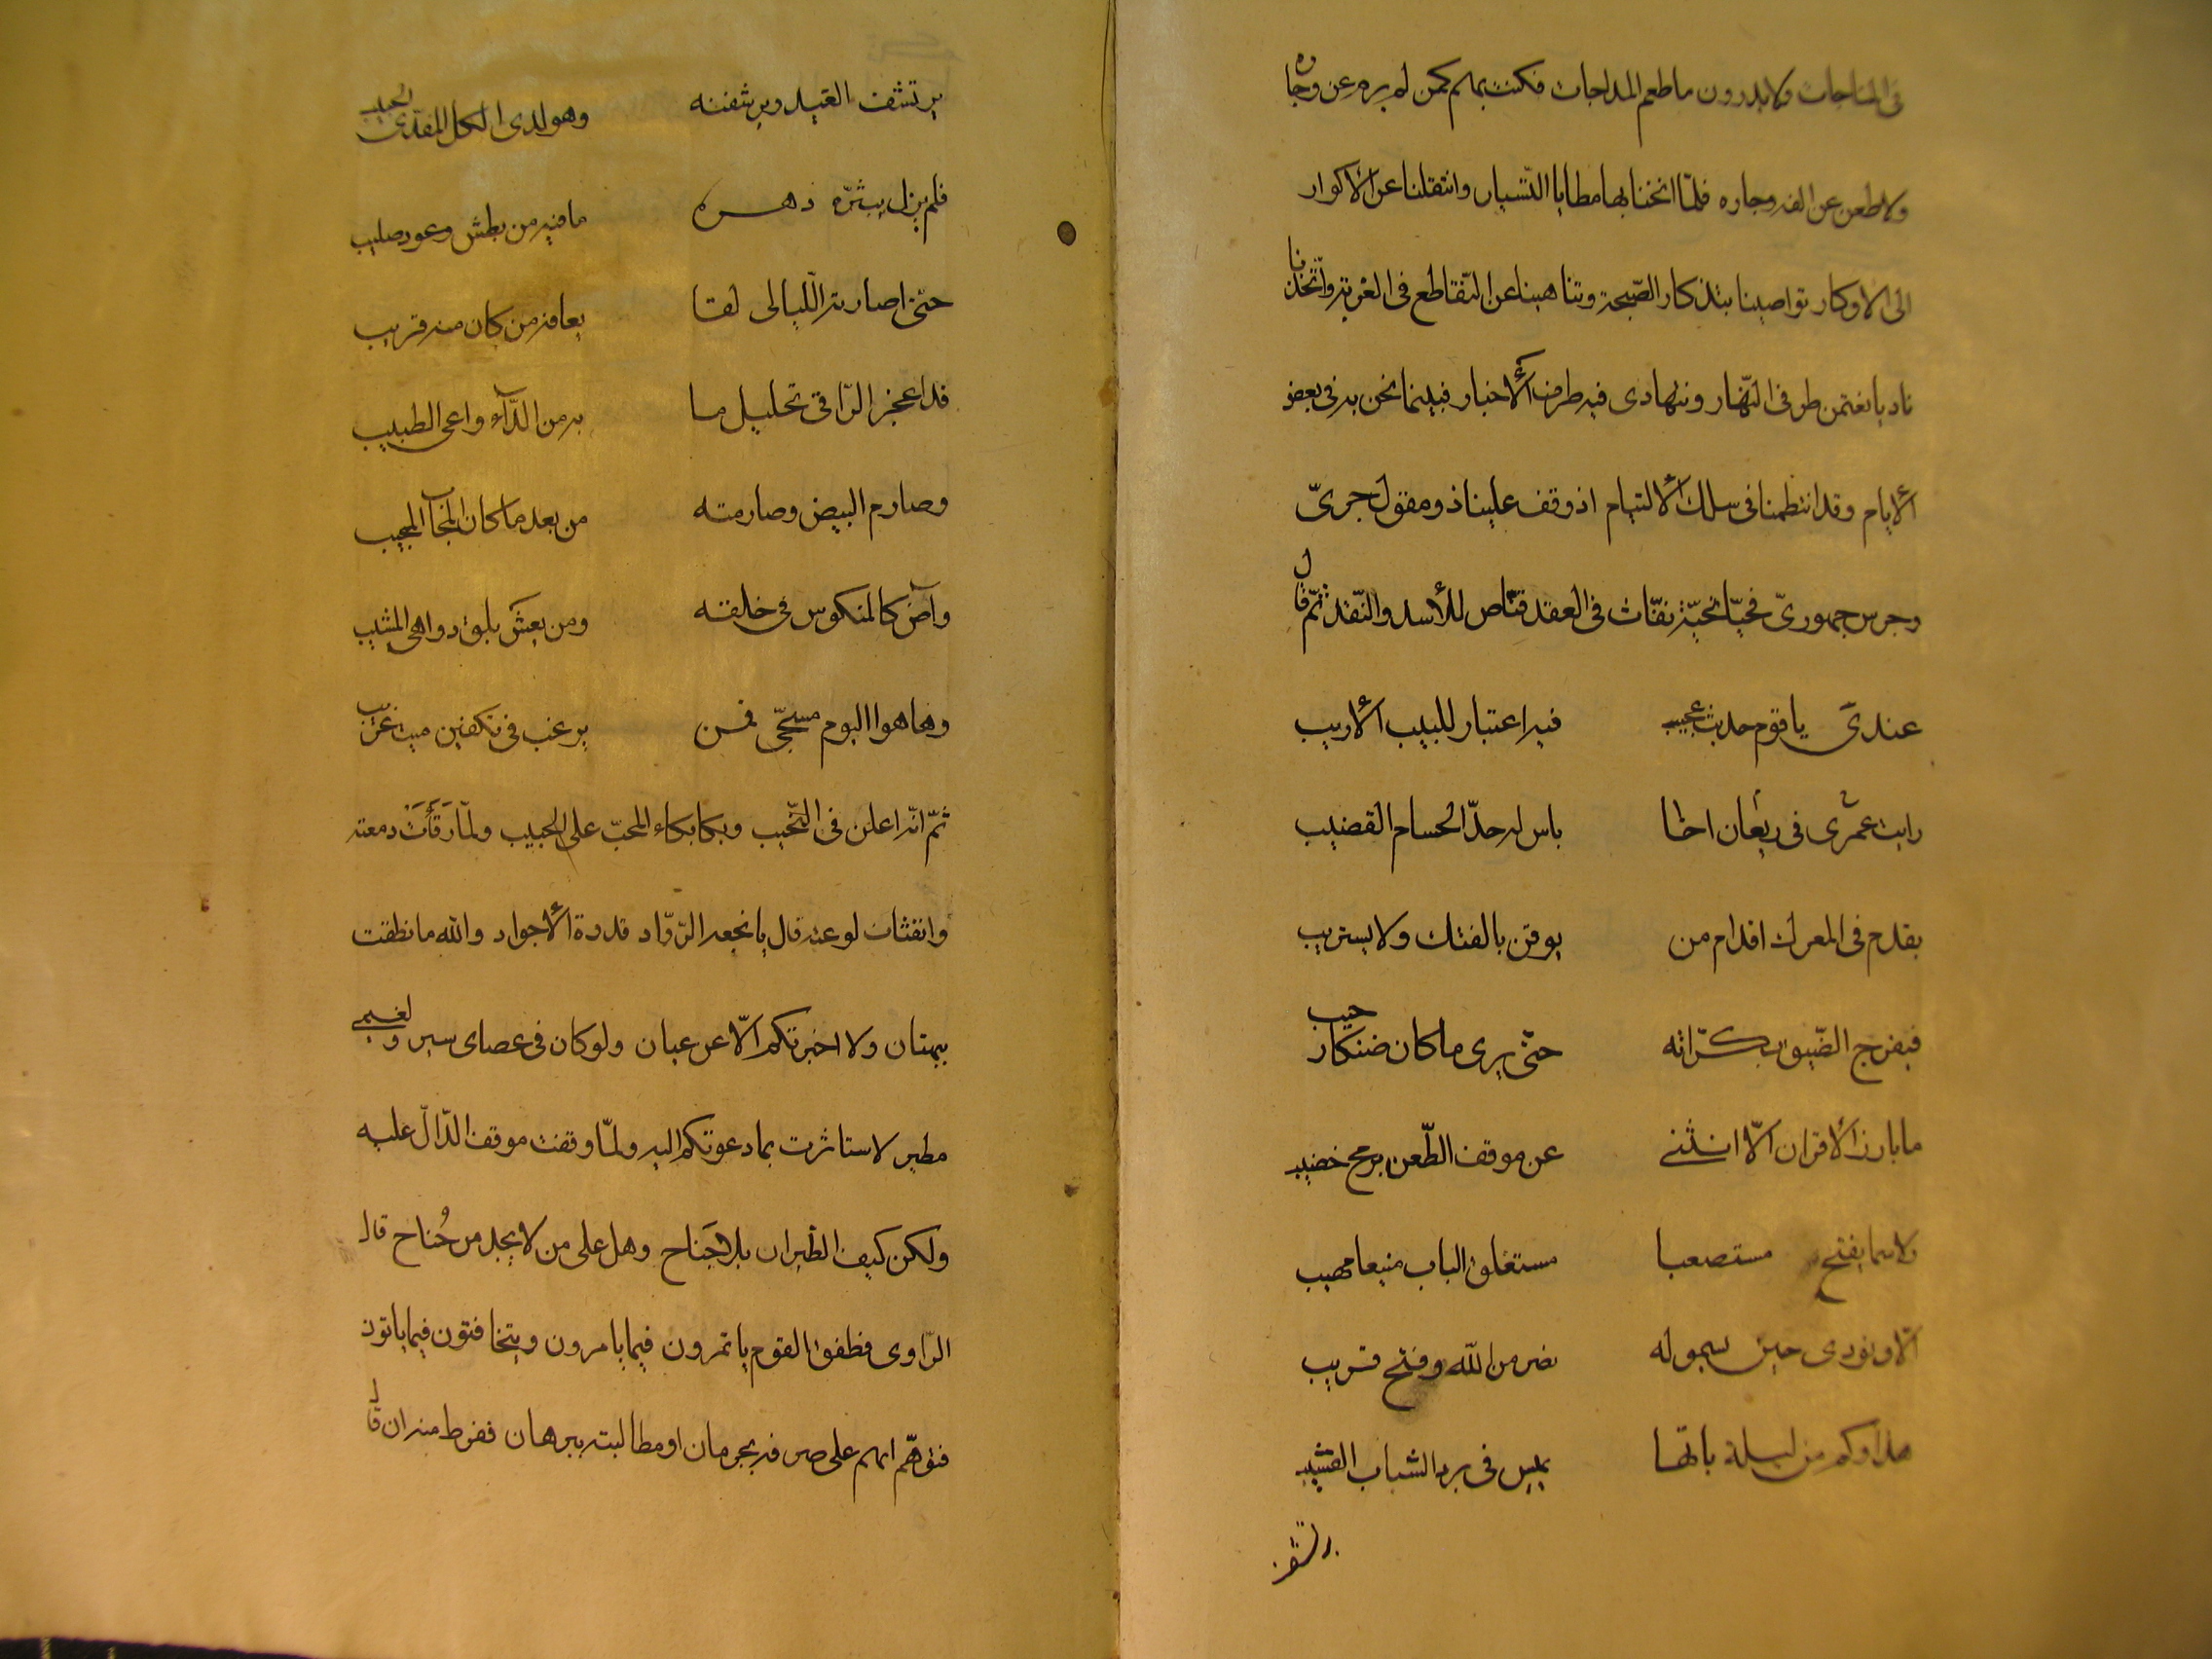 في المناجات ولا يدرون ما طعم المداجات فكنت بهم كمن لم يرم عن وجاره
ولا ظعن عن الفه وجاره فلمّا انخنا بها مطايا التّسيار وانتقلنا عن الأكوار
الى الاوكار تواصينا بتذكار الصّحبة وتناهينا عن التّقاطع في الغربة واتّخذنا
ناديا نغتمن طرفى النّهار ونتهادى فيه طرف الأخبار فبينما نحن به في بعض
الأيام وقد انتظمنا في سلك الألتيام اذ وقف علينا ذو مقول جرىّ
وجرس جهورىّ فحيّا تحيّة نفّاث في العقد قنّاص للأسد والنّقد ثمّ قال
عندى يا قوم حديث عجيب فيه اعتبار للبيب الأريب
رايت عمرى في ريعان اخا باس له حدّ الحسام القضيب
يقدم في المعرك اقدام من يوقن بالفتك ولا يستريب
فيفرج الضّيق بكرّاته حتّى يرى ما كان ضنكا رحيب
ما بارز الأقران الّا انثنى عن موقف الطّعن برمح خضيب
ولا سما يفتح مستصعبا مستغلق الباب منيعا مهيب
الّا ونودى حين يسمو له نصر من الله وفتح قريب
هذا وكم من ليلة باتها يميس في برد الشباب القشيب
يرتشف
يرتشف الغيد ويرشفنه وهو لدى الكل المفدّى الحبيب
فلم يزل يبتزّه دهره ما فيه من بطش وعود صليب
حتّى اصارته اللّيالى لقا يعافه من كان منه قريب
قد اعجز الرّاقى تحليل ما به من الدّآء واعى الطبيب
وصارم البيض وصارمته من بعد ما كان المجآب المجيب
وآض كالمنكوس في خلقته ومن يعش يلق دواهى المشيب
وها هو اليوم مسجّى فمن يرغب في تكفين ميت غريب
ثمّ انّه اعلن في النّحيب وبكا بكاء المحبّ على الحبيب ولمّا رقأت دمعته
وانفثات لوعته قال يا نجعه الرّوّاد قدوة الأجواد والله ما نطقت
ببهتان ولا اخبرتكم الّا عن عيان ولو كان في عصاى سير ولغيمى
مطير لاستاثرت بما دعوتكم اليه ولمّا وقفت موقف الدّالّ عليه
ولكن كيف الطّيران بلا جَناح وهل على من لا يجد من جُناح قال
الرّاوى فطفق القوم ياتمرون فيما يامرون ويتخافتون فيما ياتون
فتوهّم انهم على صرفه بحرمان او مطالبته ببرهان ففرط منه ان قال